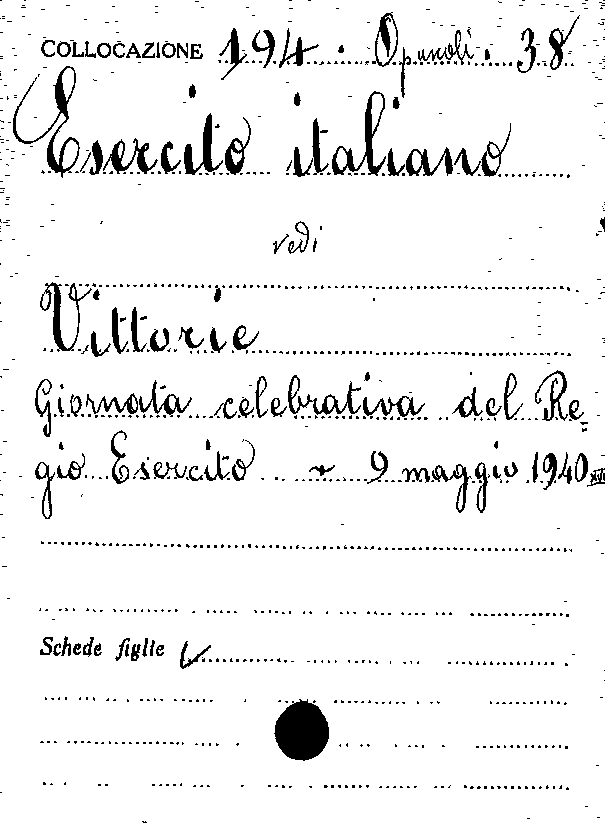 COLLOCAZIONE 194. Opuscoli. 38
Esercito italiano
vedi
Vittorie
Giornata celebrativa del Re=
gio Esercito - 9 maggio 1940 XVIII
Schede figlie V